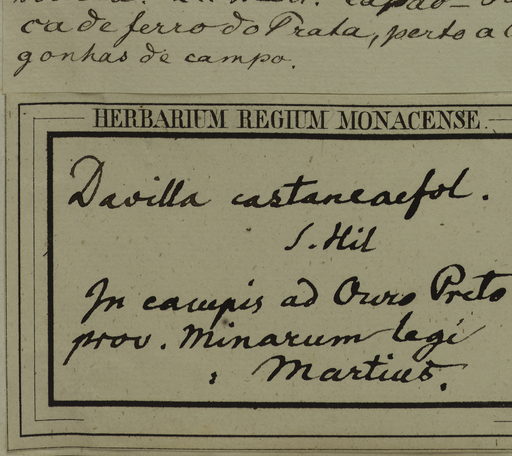 ça de ferro do Prata, perto a
gonhas de campo.
HERBARIUM REGIUM MONACENSE.
Davilla castaneaefol.
S. Hil
In campis ad Ouro Preto
prov. Minarum legi
Martius.